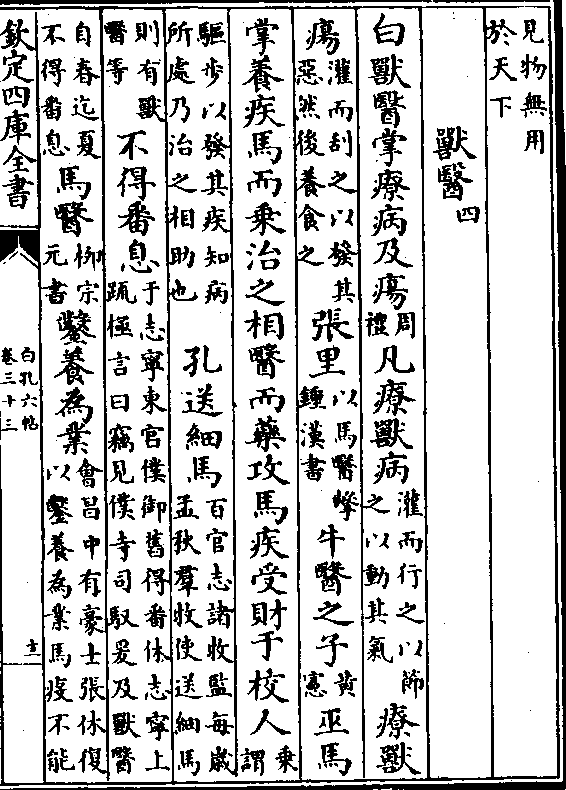 見物無用
於天下
獸醫四
白獸醫掌療病及瘍周禮凡療獸病灌而行之以節之以動其氣療獸
瘍灌而刮之以發其惡然後養食之張里以馬醫擊鍾漢書牛醫之子黃憲巫馬
掌養疾馬而乗治之相醫而藥攻馬疾受財于校人乗謂
驅步以發其疾知病所處乃治之相助也孔送細馬百官志諸牧監每歲孟秋羣牧使送細馬
則有獸醫等不得番息于志寧東宮僕御舊得番休志寧上疏極言曰竊見僕寺司馭爰及獸醫
自春迄夏不得番息馬醫柳宗元書鑿養為業會昌中有豪士張休復以鑿養為業馬疫不能
欽定四庫全書
白孔六帖
卷三十三
十二